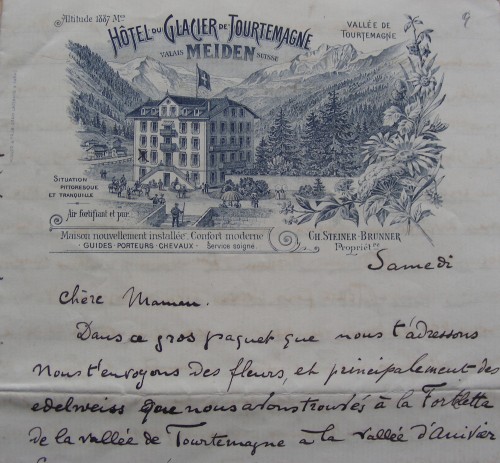 Altitude 1887 Mes
9
HÔTEL DU GLACIER DE TOURTEMAGNE
VALLÉE DE
TOURTEMAGNE
VALAIS MEIDEN SUISSE
SITUATION
PITTORESQUE
ET TRANQUILLE
Air fortifiant et pur
Maison nouvellement installée. Confort moderne
- GUIDES - PORTEURS - CHEVAUX - Service soigné
CH. STEINER-BRUNNER
Propriétre
Samedi
Chère Maman.
Dans ce gros paquet que nous t'adressons
nous t'envoyons des fleurs, et principalement des
edelweiss que nous avons trouvés à la Forkletta
de la vallée de Tourtemagne à la vallée d'Anivier